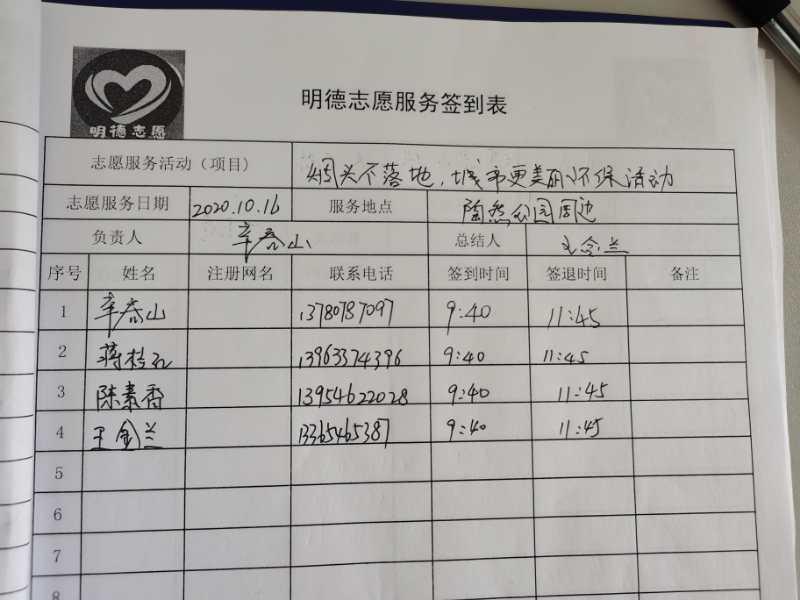 明德志愿
明德志愿服务签到表
志愿服务活动（项目） 烟头不落地，城市更美丽环保活动
志愿服务日期 2020.10.16 服务地点 陶然公园周边
负责人 辛春山 总结人 王金兰
序号 姓名 注册网名 联系电话 签到时间 签退时间 备注
1 辛春山 13780787097 9:40 11:45
2 蒋桂孔 13963374396 9:40 11:45
3 陈素香 13954622028 9:40 11:45
4 王金兰 13365465387 9:40 11:45
5
6
7
8